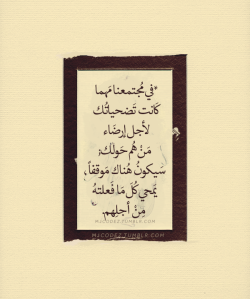 *في مُجتمعنا مَهما
كَانت تَضحياتُك
لأجل إرضَاء
مَنْ هُم حَولك؛
سَيكونُ هُناك مَوقفاً،
يَمحي كُلَ مَا فَعلتهُ
مِنْ أجلِهم.
MJCODEZ.TUMBLR.COM
MJCODEZ.TUMBLR.COM